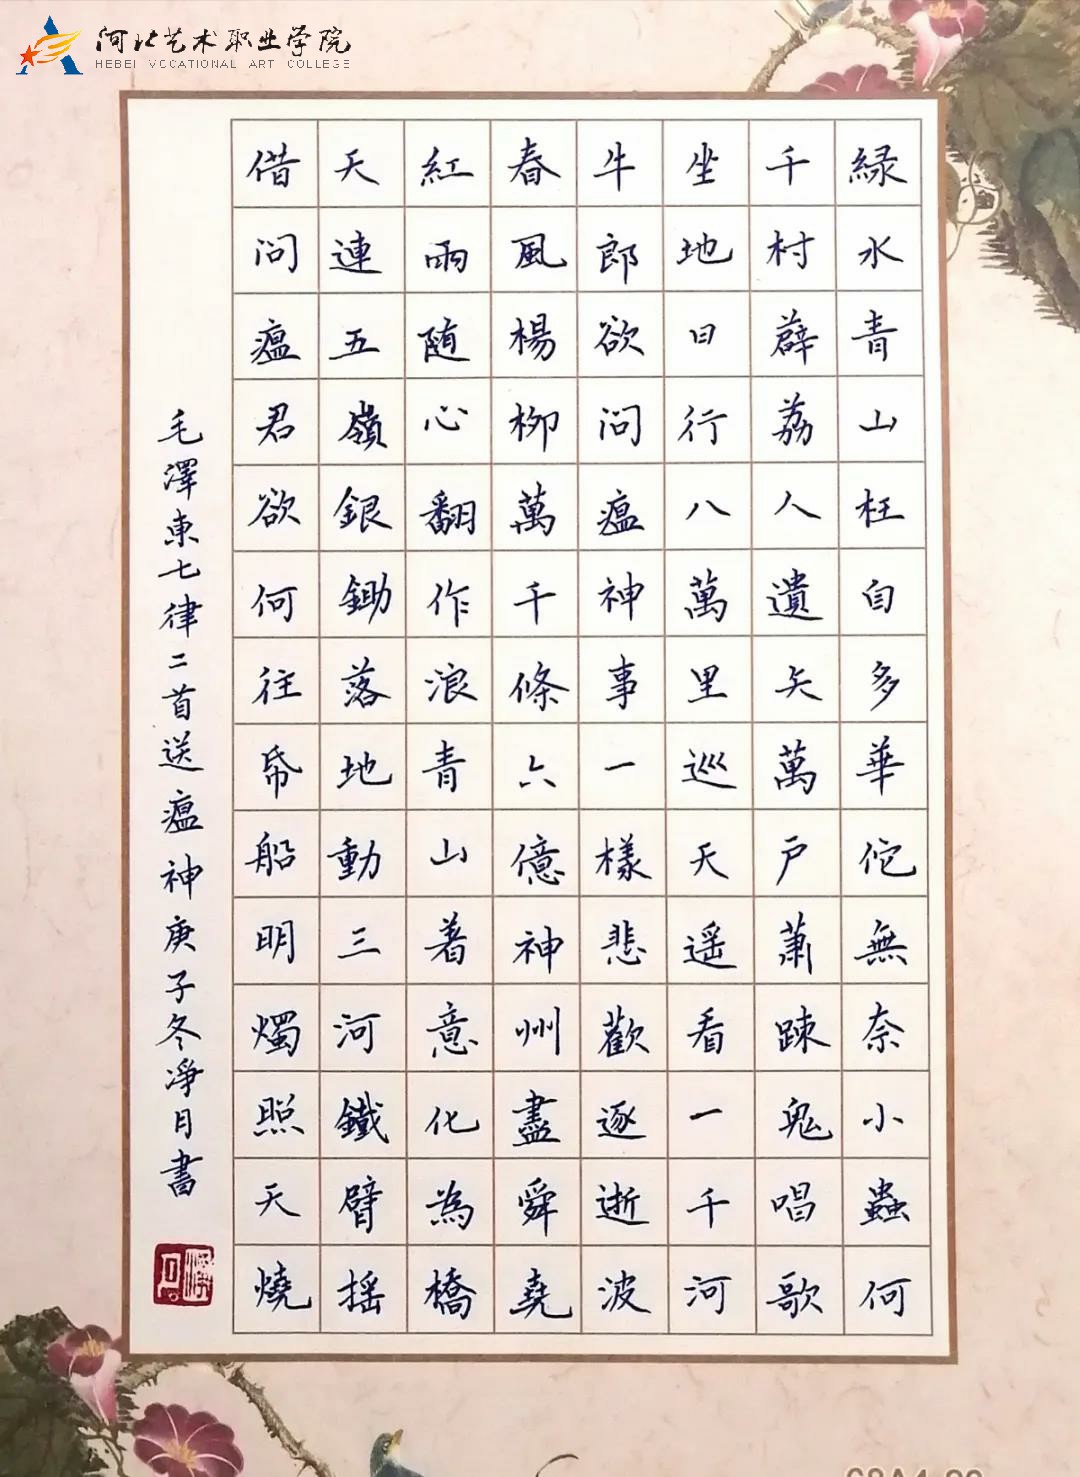 河北艺术职业学院
HEBEI VOCATIONAL ART COLLEGE
緑水青山枉自多華佗無奈小蟲何
千村薜荔人遺矢萬户蕭踈鬼唱歌
坐地日行八萬里巡天遥看一千河
牛郎欲问瘟神事一樣悲歡逐逝波
春風楊柳萬千條六億神州盡舜堯
紅雨随心翻作浪青山着意化為橋
天連五嶺銀鋤落地動三河鐵臂摇
借问瘟君欲何往帋船明燭照天燒
毛澤東七律二首送瘟神庚子冬凈月書